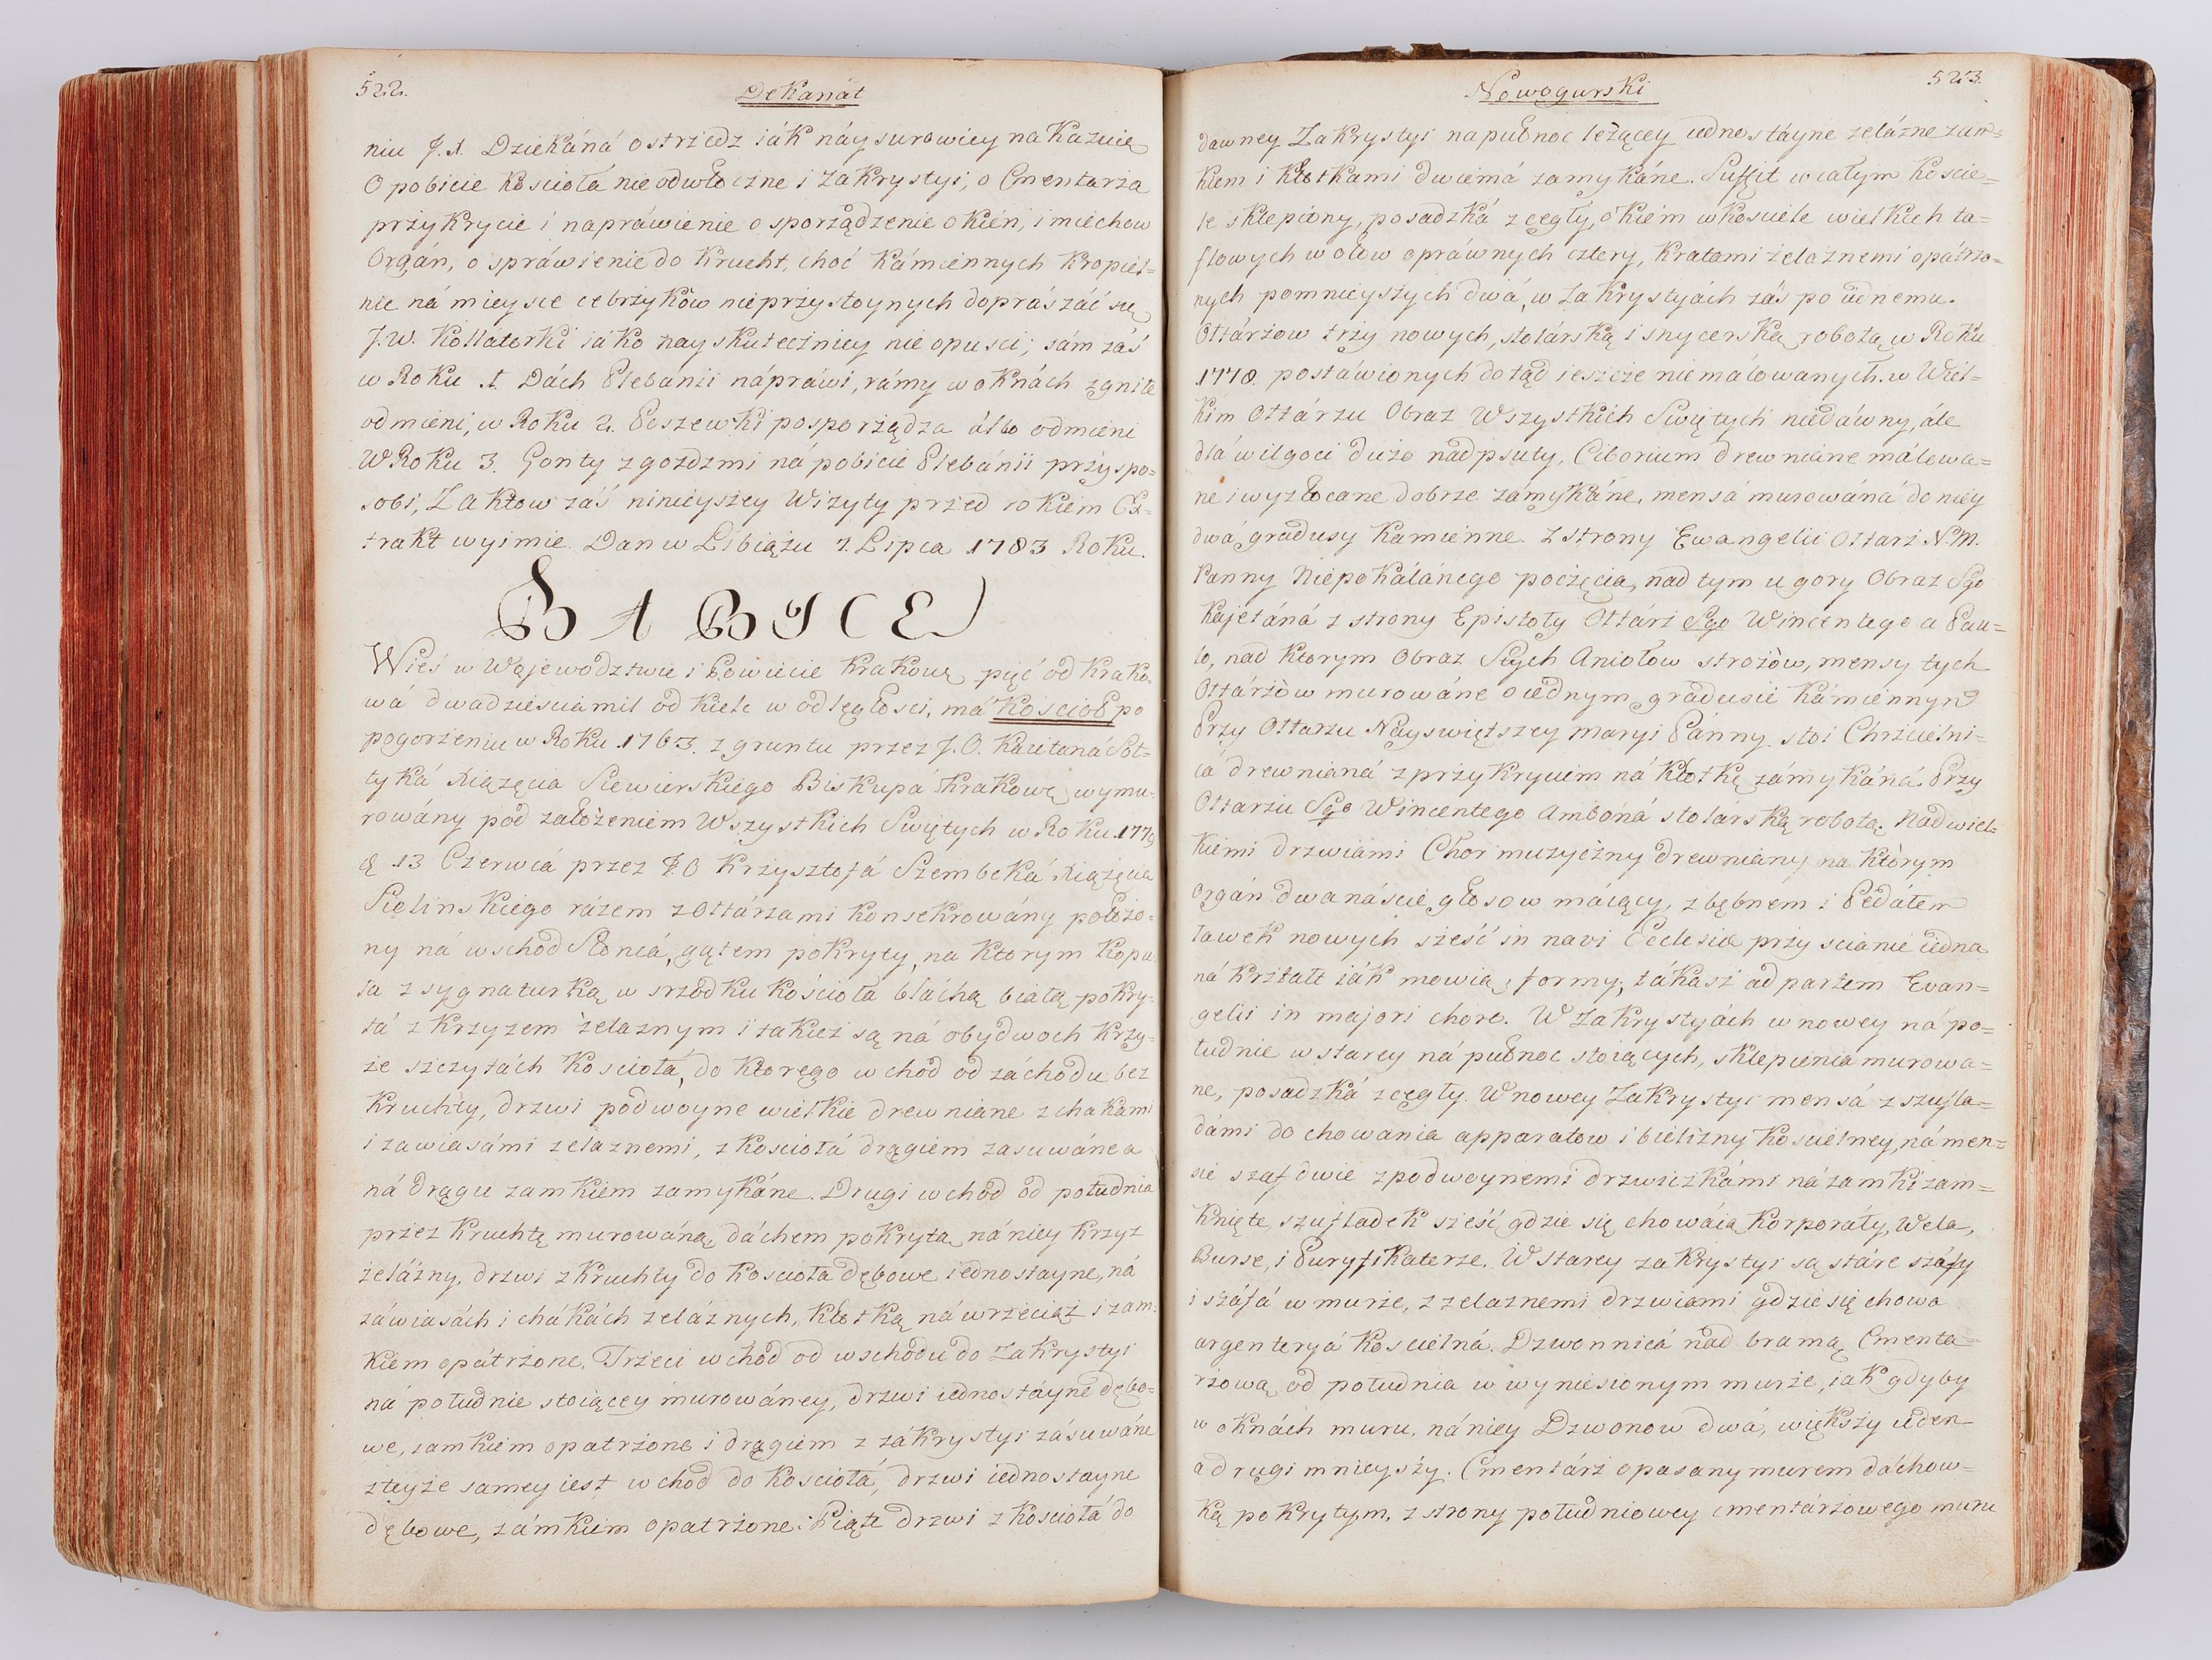 522.
Dekanát
niu J.X. Dziekáná ostrzedz iák náysurowiey nakazuię
O pobicie kościołá nieodwłoczne i Zakrystyi, o Cmentarza
przykrycie i napráwienie o sporządzenie okień, i miechow
Orgán, o spráwienie do Krucht, choć kámiennych kropiel=
nic ná mieysce cebrzyków nieprzystoynych doprászáć się
J.W. Kollátorki iáko nayskuteczniey nie opusci; sám záś
w Roku 1. Dách Plebanii nápráwi, rámy w oknách zgnite
odmieni, w Roku 2. Poszewki posporządza álbo odmieni
W Roku 3. Gonty z gozdzmi ná pobicie Plebánii przyspo=
sobi, Z Aktow záś ninieyszey Wizyty przed rokiem Ex=
trakt wyimie. Dan w Libiążu 7. Lipca 1783 Roku.
BABICE
Wieś w Województwie i Powiecie Krakows. pięć od Krako=
wá dwadzieścia mil od Kielc w odległości, má kościoł po
pogorzeniu w Roku 1763. z gruntu przez J.O. Kaietaná Soł=
tyká Xiążęcia Siewierskiego Biskupá Krakows. wymu=
rowány pod założeniem Wszystkich Swiętych w Roku 1779
d. 13 Czerwcá przez J.O Krzysztofá Szembeká Xiążęcia
Sielinskiego rázem z Ołtárzami konsekrowány położo=
ny ná wschod Słoncá, gątem pokryty, na ktorym kopu=
ła z sygnaturką w srzodku kościoła bláchą biáłą pokry=
tá z krzyzem żelaznym i takież są ná obydwoch krzy=
że szczytách kościołá, do ktorego wchod od záchodu bez
kruchty, drzwi podwoyne wielkie drewniane z chakami
i zawiasámi zelaznemi, z kościołá drągiem zasuwáne a
ná drągu zamkiem zamykáne. Drugi wchod od południa
przez kruchtę murowáną, dáchem pokrytą, ná niey krzyz
żelázny, drzwi z kruchty do kościoła dębowe iednostayne, ná
záwiasách i chákách zeláznych, kłotką ná wrzeciąż i zam=
kiem opátrzone. Trzeci wchod od wschodu do Zakrystyi
ná południe stoiącey murowáney, drzwi iednostáyne dębo=
we, zamkiem opatrzone i drągiem z zákrystyi zásuwáne
z teyże samey iest wchod do kościołá, drzwi iednostayne
dębowe, zámkiem opatrzone. Piąte drzwi z kościołá do
Nowogurski
523.
dawney Zakrystyi na pułnoc leżącey iednostáyne zelázne zam=
kiem i kłotkami dwiemá zamykáne. Suffit w całym koście=
le sklepiony, posadzká z cegły, okień w kościele wielkich ta=
flowych w ołow opráwnych cztery, kratami żelaznemi opátrzo=
nych pomnieyszych dwá, w Zakrystyách záś po iednemu.
Ołtárzow trzy nowych, stolárską i snycerską robotą w Roku
1778. postáwionych dotąd ieszcze niemálowanych. w Wiel=
kim Ołtárzu Obraz Wszystkich Swiętych niedáwny, ále
dlá wilgoci dużo nádpsuty, Ciborium drewniane málowa=
ne i wyzłocane dobrze zámykáne, mensá murowáná do niey
dwá gradusy kamienne. Z strony Ewangelii Ołtarz N.M.
Panny Niepokálánego poczęcia, nad tym u gory Obraz Sgo
Kajetáná z strony Epistoły Ołtárz Sgo Wincentego a Pau=
lo, nad ktorym Obraz SSych Aniołow strożów, mensy tych
Ołtárzów murowáne o iednym gradusie kámiennym
Przy Ołtarzu Nayswiętszey Maryi Pánny stoi Chrzcielni=
cá drewnianá z przykryciem ná kłotkę zámykáná. Przy
Ołtarzu Sgo Wincentego Amboná stolárską robotą. Nad wiel=
kiemi drzwiami Chor muzyczny drewniany na ktorym
Orgán dwanáście głosow máiący, z bębnem i Pedáłem
ławek nowych sześć in navi Ecclesiæ przy scianie iedna
ná krztałt iák mowią, formy, tákasz ad partem Evan=
gelii in majori choro. W Zakrystyach w nowey ná po=
łudnie w starey ná pułnoc stoiących, sklepienia murowa=
ne, posadzká z cegły. W nowey Zakrystyi mensá z szufla=
dámi do chowania apparatow i bielizny kościelney, ná men=
sie szaf dwie z podwoynemi drzwiczkámi ná zamki zam=
knięte, szufladek sześć, gdzie się chowáią Korporáły, Wela,
Burse, i Puryfikaterze. W starey zakrystyi są stáre száfy
i száfá w murze, z zelaznemi drzwiami gdzie się chowa
argenteryá kościelná. Dzwonnicá nad bramą Cmenta=
rzową od południa w wyniesionym murze, iak gdyby
w oknách muru, ná niey Dzwonow dwá, większy ieden
a drugi mnieyszy. Cmentárz opasany murem dáchow=
ką pokrytym, z strony południowey cmentárzowego muru